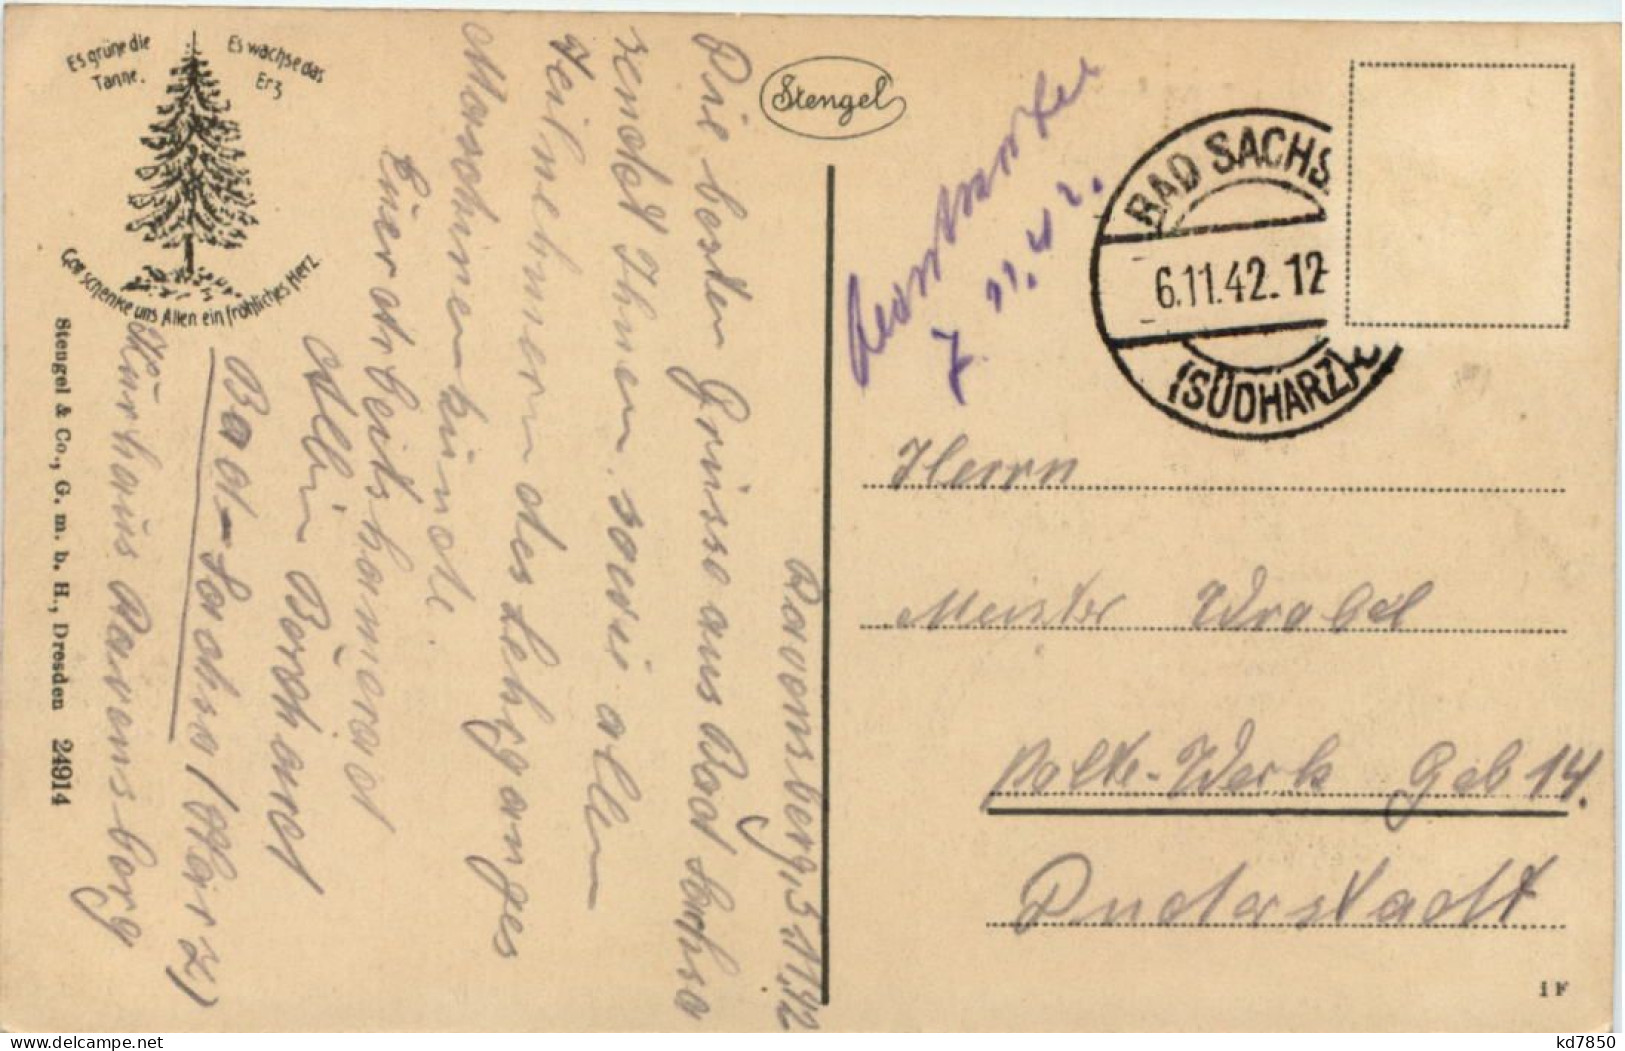 Es grüne die
Tanne.
Es wachse das
Erz
Gott schenke uns Allen ein fröhliches Herz.
Stengel & Co., G. m. b. H., Dresden 24914
Stengel
BAD SACHS
6.11.42.12
(SÜDHARZ)
7. 11. 42.
Ravensberg, 5.11.42
Die besten Grüsse aus Bad Sachsa
sendet Ihnen, sowie allen
Teilnehmern des Lehrganges
Maschinenkunde.
Euer Arbeitskamerad
Bad-Sachsa (Harz)
Kurhaus Ravensberg
Herrn
Meister Wrabel
Polte-Werk Geb 14.
Duderstadt
1 F
kd7850